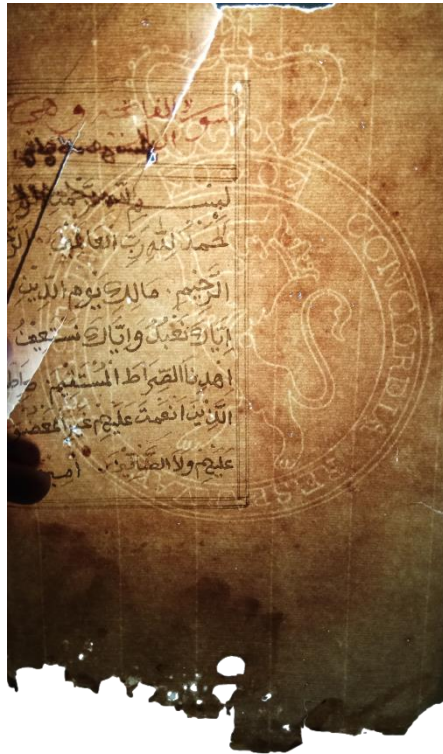 سورة الفاتحة وهي
بسم الله الرحمن
الْحَمْدُ لِلّٰهِ رَبِّ الْعَالَمِينَ .
الرَّحِيْمِ . مَالِكِ يَوْمِ الدِّيْنِ
اِيَّاكَ نَعْبُدُ وَاِيَّاكَ نَسْتَعِيْنُ
اهْدِنَا الصِّرَاطَ الْمُسْتَقِيْمَ
الَّذِيْنَ اَنْعَمْتَ عَلَيْهِمْ غَيْرِ
عَلَيْهِمْ وَلَا الضَّالِّيْنَ . اٰمين
CONCORDIA